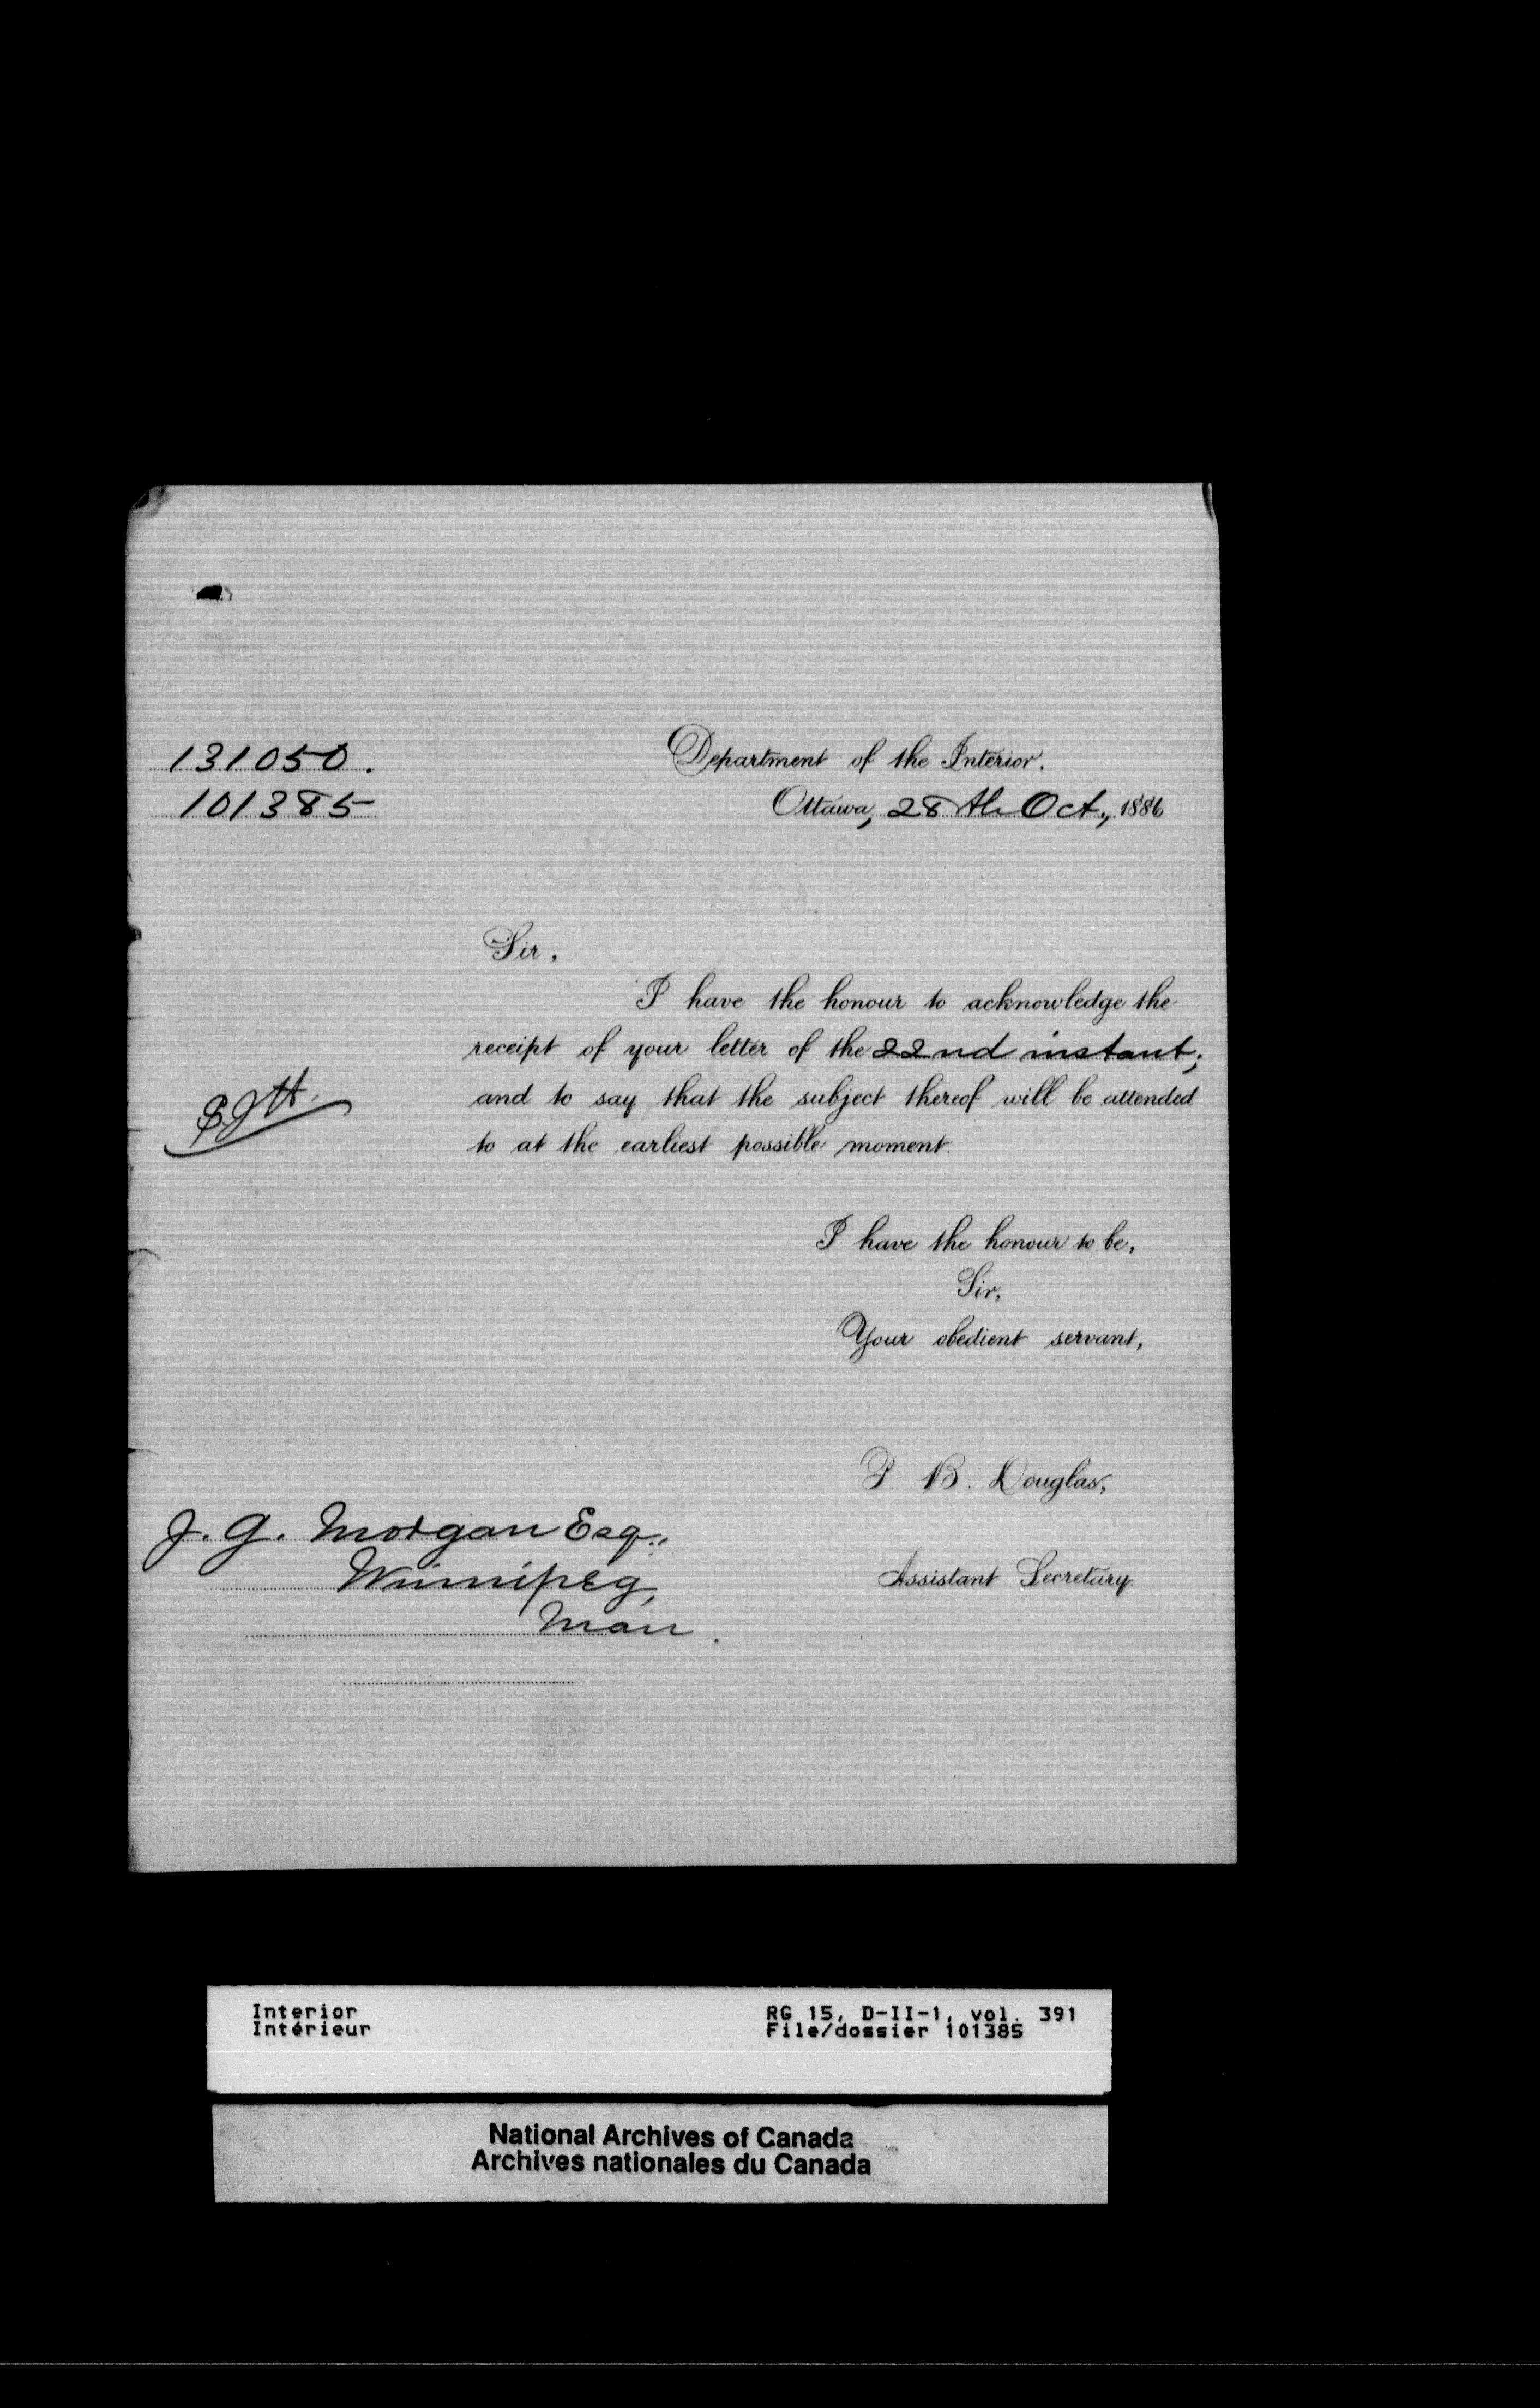 131050.
101385
Department of the Interior.
Ottawa, 28th Oct., 1886
Sir,
I have the honour to acknowledge the
receipt of your letter of the 22nd instant;
and to say that the subject thereof will be attended
to at the earliest possible moment.
I have the honour to be,
Sir,
Your obedient servant,
P. B. Douglas,
Assistant Secretary.
J. G. Morgan Esq.,
Winnipeg,
Man.
Interior
Intérieur
RG 15, D-II-1, vol. 391
File/dossier 101385
National Archives of Canada
Archives nationales du Canada